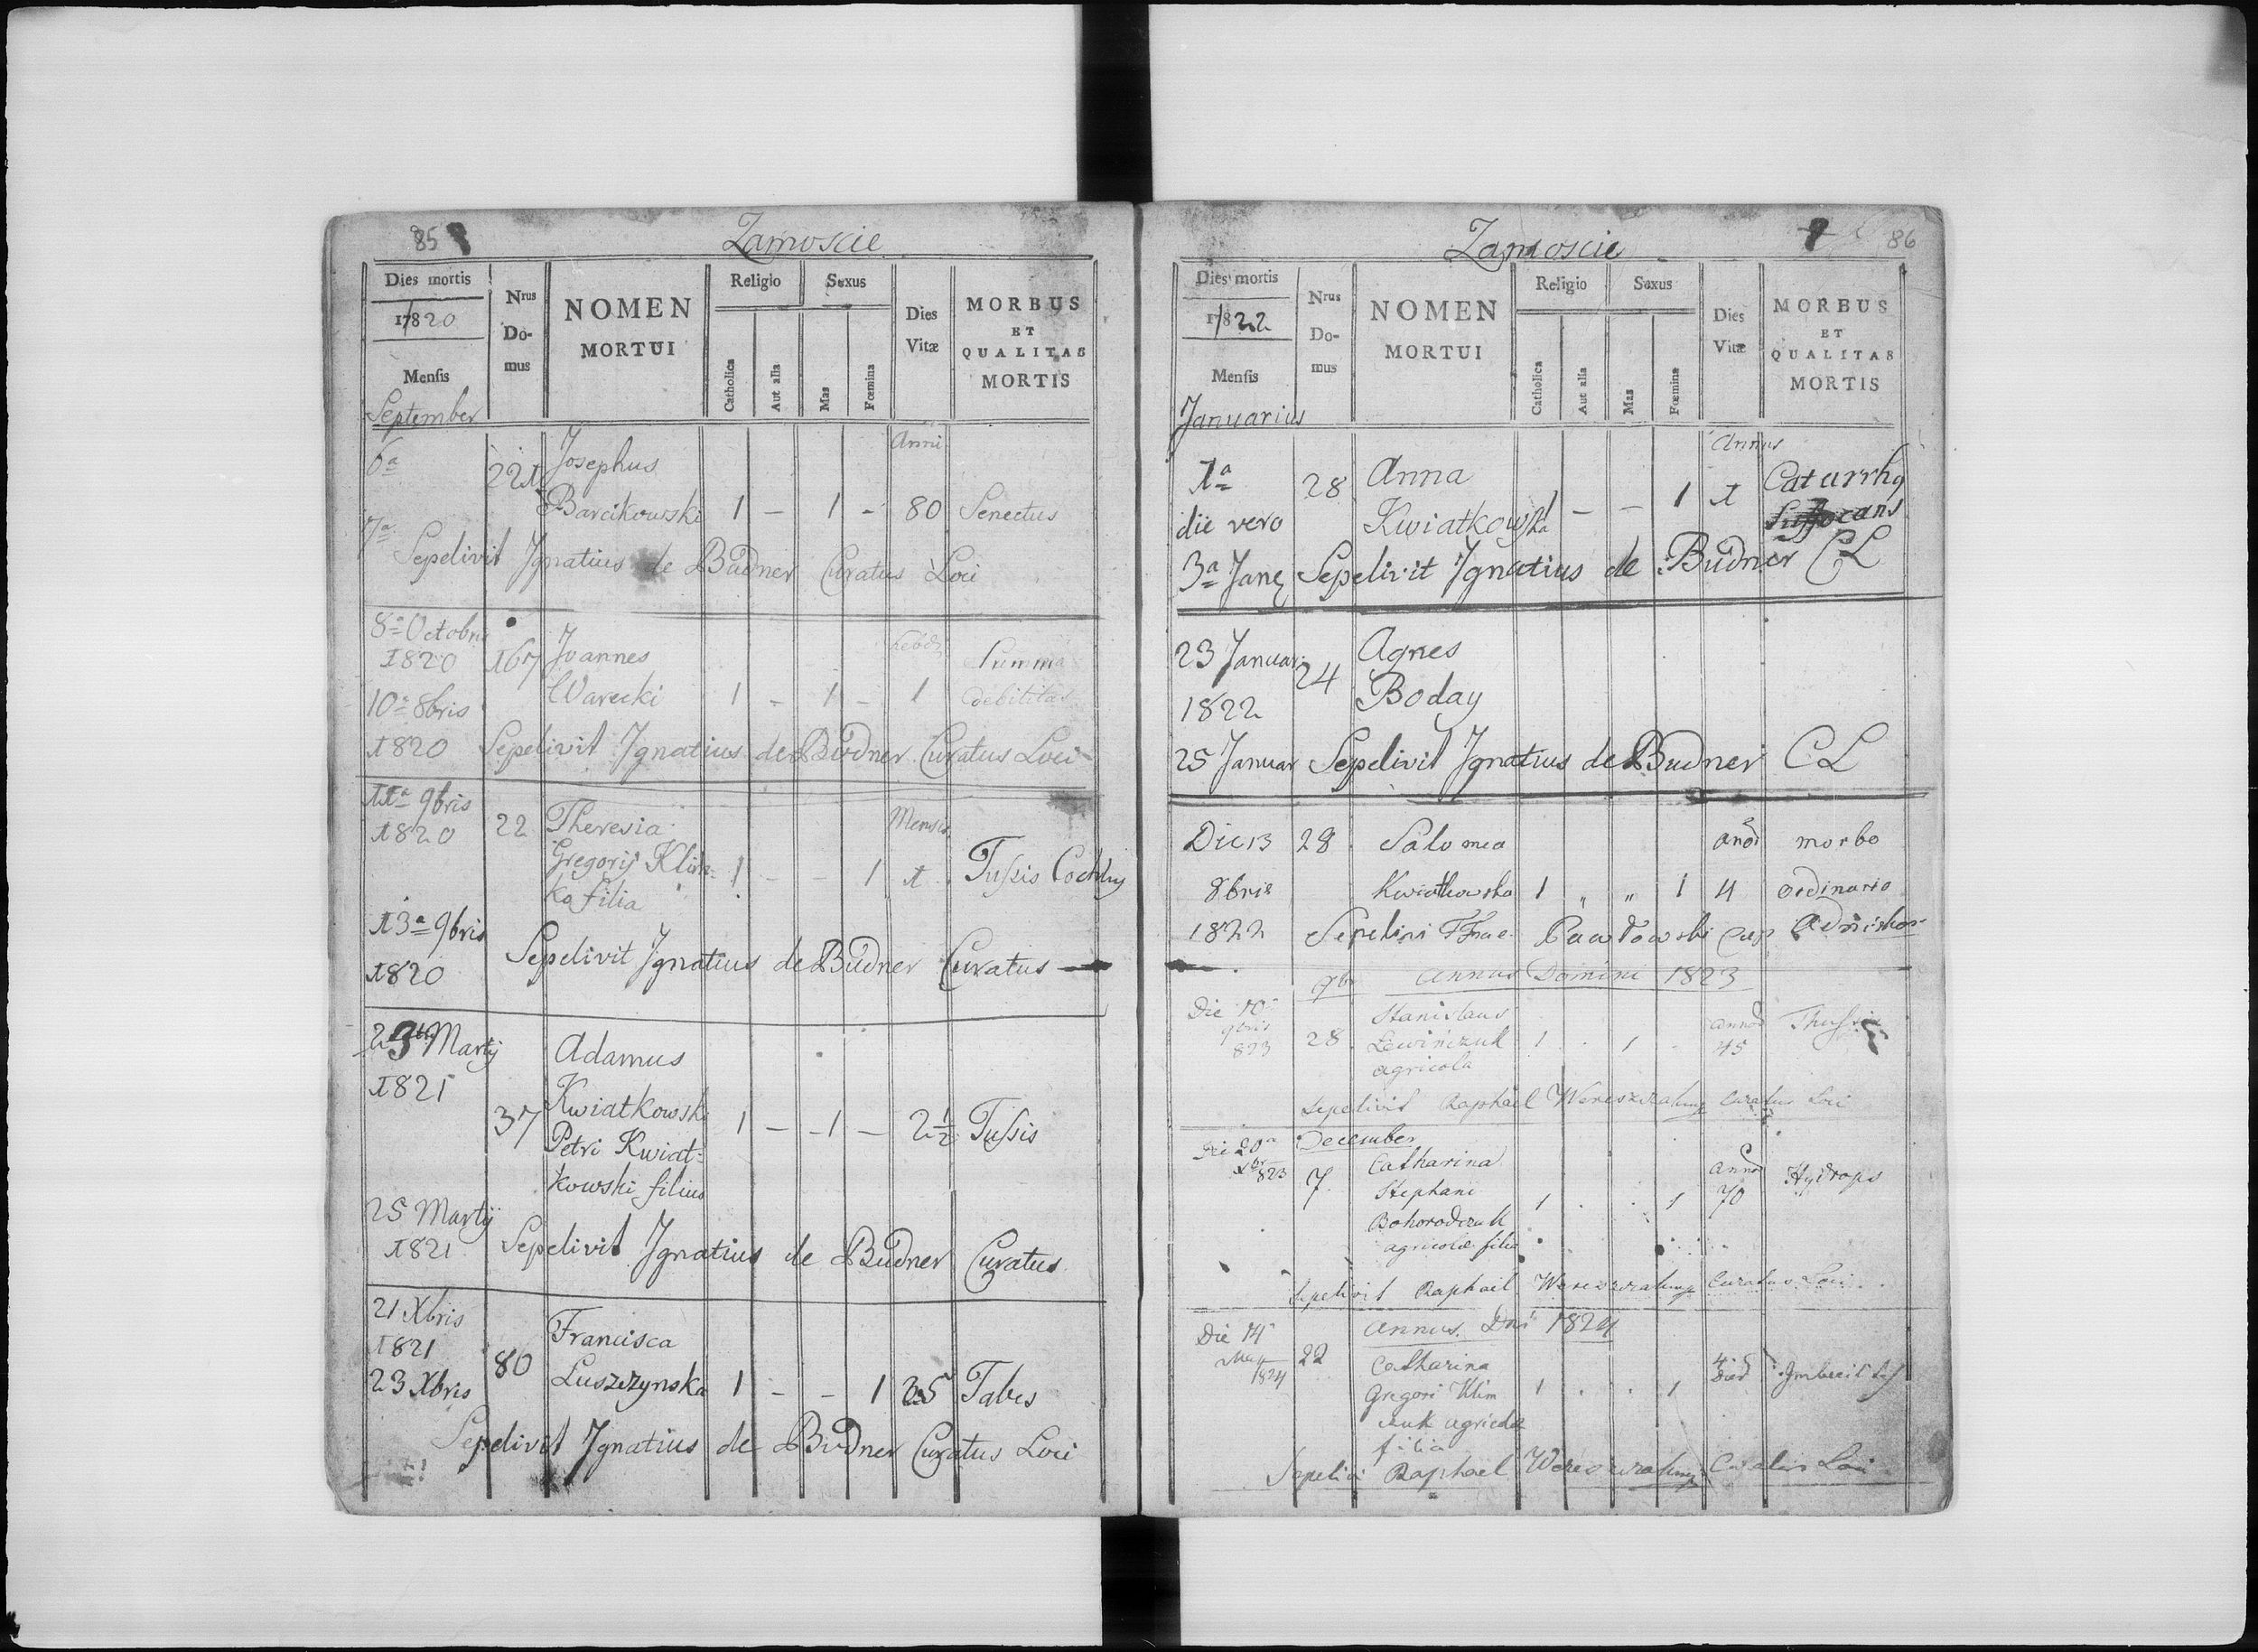 85
Zamoscie
Dies mortis
17820
Mensis
September
Nrus
Do-
mus
NOMEN
MORTUI
Religio
Catholica
Aut alia
Sexus
Mas
Fœmina
Dies
Vitæ
MORBUS
ET
QUALITAS
MORTIS
6a
221
Josephus
Anni
Barcikowski 1 - 1 - 80 Senectus
7a
Sepelivit Ignatius de Budner Curatus Loci
8a Octobris
1820 167 Joannes
Summa
Warecki 1 - 1 - 1 debilitas
10a 8bris
1820 Sepelivit Ignatius de Budner Curatus Loci
11a 9bris
1820 22 Theresia
Mensis
Gregorij Klim-
ka filia 1 - - 1 1 Tussis
13a 9bris
1820
Sepelivit Ignatius de Budner Curatus
Martij
1821
37
Adamus
Kwiatkowski
Petri Kwiat-
kowski filius
1 - 1 - 2½ Tussis
25 Martij
1821
Sepelivit Ignatius de Budner Curatus
21 Xbris
1821
23 Xbris
80
Francisca
Luszczynska 1 - - 1 25 Tabes
Sepelivit Ignatius de Budner Curatus Loci
86
Zamoscie
Dies mortis
17822
Mensis
Januarius
Nrus
Do-
mus
NOMEN
MORTUI
Religio
Catholica
Aut alia
Sexus
Mas
Fœminæ
Dies
Vitæ
MORBUS
ET
QUALITAS
MORTIS
1a
die vero
28
Anna
Kwiatkowska
Annus
1 - - 1 1
Catarrhg
Suffocans
3a Sepelivit Ignatius de Budner CL
23 Januar
1822
24
Agnes
Boday
25 Januar Sepelivit Ignatius de Budner CL
Die 13 28 Salomea morbo
8bris Kwiatkowska 1 " " 1 4 ordinario
1822 Pawłowski
Annus Domini 1823
Die 10
9bris
823
28
Stanislaus
Lewinczuk
agricola
1 . 1 .
45
Sepelivit Raphael Curatus Loci
December
Die 20a
Xbr
823
7
Catharina
Stephani
Bohorodczuk
agricolæ filia
1 . . 1
70
Hydrops
Sepelivit Raphael Curatus Loci
Annus Dni 1824
Die 14
1824
22
Catharina
Gregori Klim
czuk agricolæ
filia
1 . . 1
4
Raphael